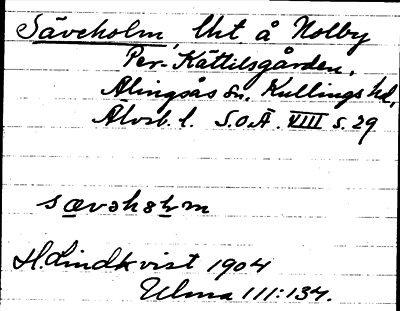 Säveholm, lht å Nolby
Per-Kättilsgården,
Alingsås sn, Kullings hd,
Älvsb. l. S.O.Ä. VIII s. 29
H. Lindkvist 1904
Ulma 111:134.